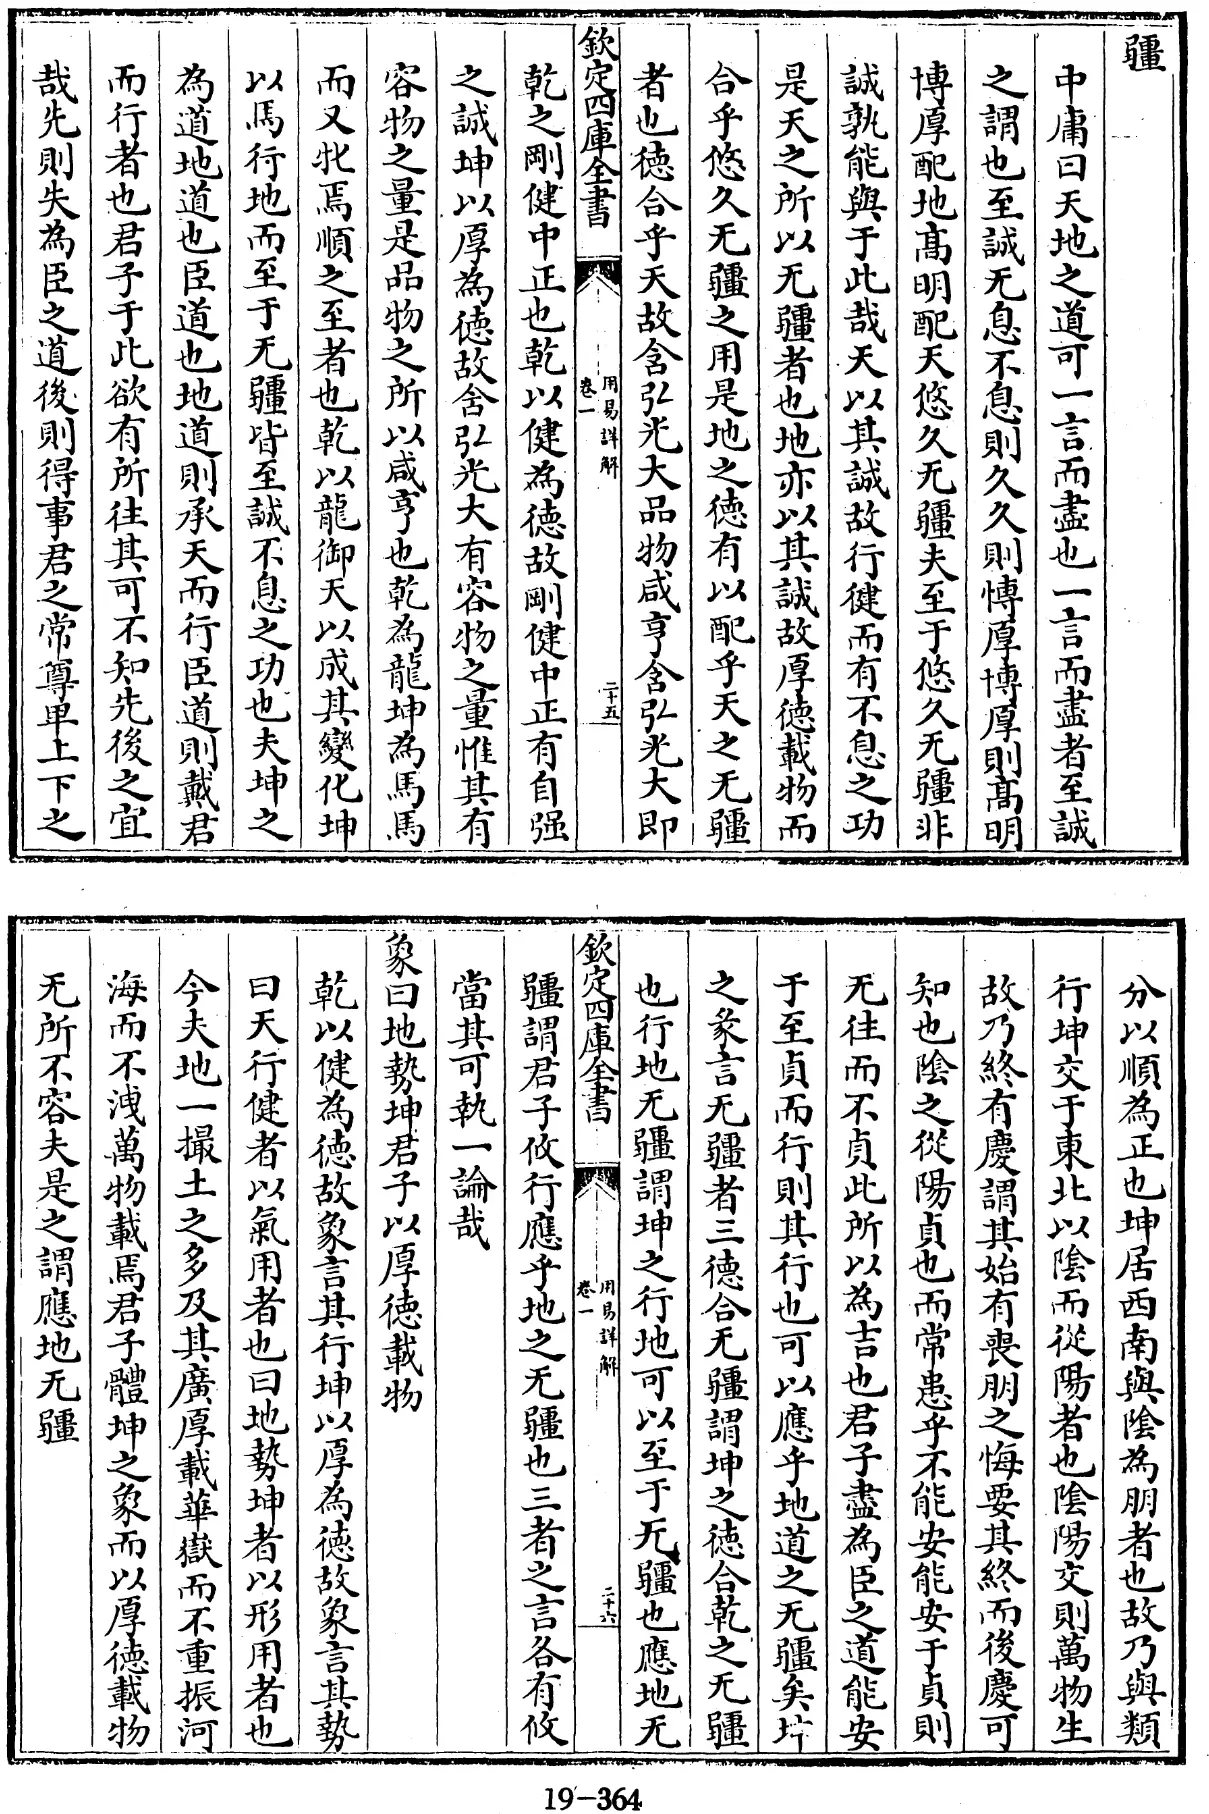 疆
中庸曰天地之道可一言而盡也一言而盡者至誠
之謂也至誠无息不息則久久則博厚博厚則髙明
博厚配地髙明配天悠久无疆夫至于悠久无疆非
誠孰能與于此哉天以其誠故行健而有不息之功
是天之所以无疆者也地亦以其誠故厚德載物而
合乎悠久无疆之用是地之德有以配乎天之无疆
者也德合乎天故含弘光大品物咸亨含弘光大即
欽定四庫全書
用易詳解
卷一
二十五
乾之剛健中正也乾以健為德故剛健中正有自强
之誠坤以厚為德故含弘光大有容物之量惟其有
容物之量是品物之所以咸亨也乾為龍坤為馬馬
而又牝焉順之至者也乾以龍御天以成其變化坤
以馬行地而至于无疆皆至誠不息之功也夫坤之
為道地道也臣道也地道則承天而行臣道則戴君
而行者也君子于此欲有所往其可不知先後之宜
哉先則失為臣之道後則得事君之常尊卑上下之
分以順為正也坤居西南與陰為朋者也故乃與類
行坤交于東北以陰而從陽者也陰陽交則萬物生
故乃終有慶謂其始有喪朋之悔要其終而後慶可
知也陰之從陽貞也而常患乎不能安能安于貞則
无往而不貞此所以為吉也君子盡為臣之道能安
于至貞而行則其行也可以應乎地道之无疆矣坤
之彖言无疆者三德合无疆謂坤之德合乾之无疆
也行地无疆謂坤之行地可以至于无疆也應地无
欽定四庫全書
用易詳解
卷一
二十六
疆謂君子攸行應乎地之无疆也三者之言各有攸
當其可執一論哉
象曰地勢坤君子以厚德載物
乾以健為德故象言其行坤以厚為德故象言其勢
曰天行健者以氣用者也曰地勢坤者以形用者也
今夫地一撮土之多及其廣厚載華嶽而不重振河
海而不洩萬物載焉君子體坤之象而以厚德載物
无所不容夫是之謂應地无疆
19-364